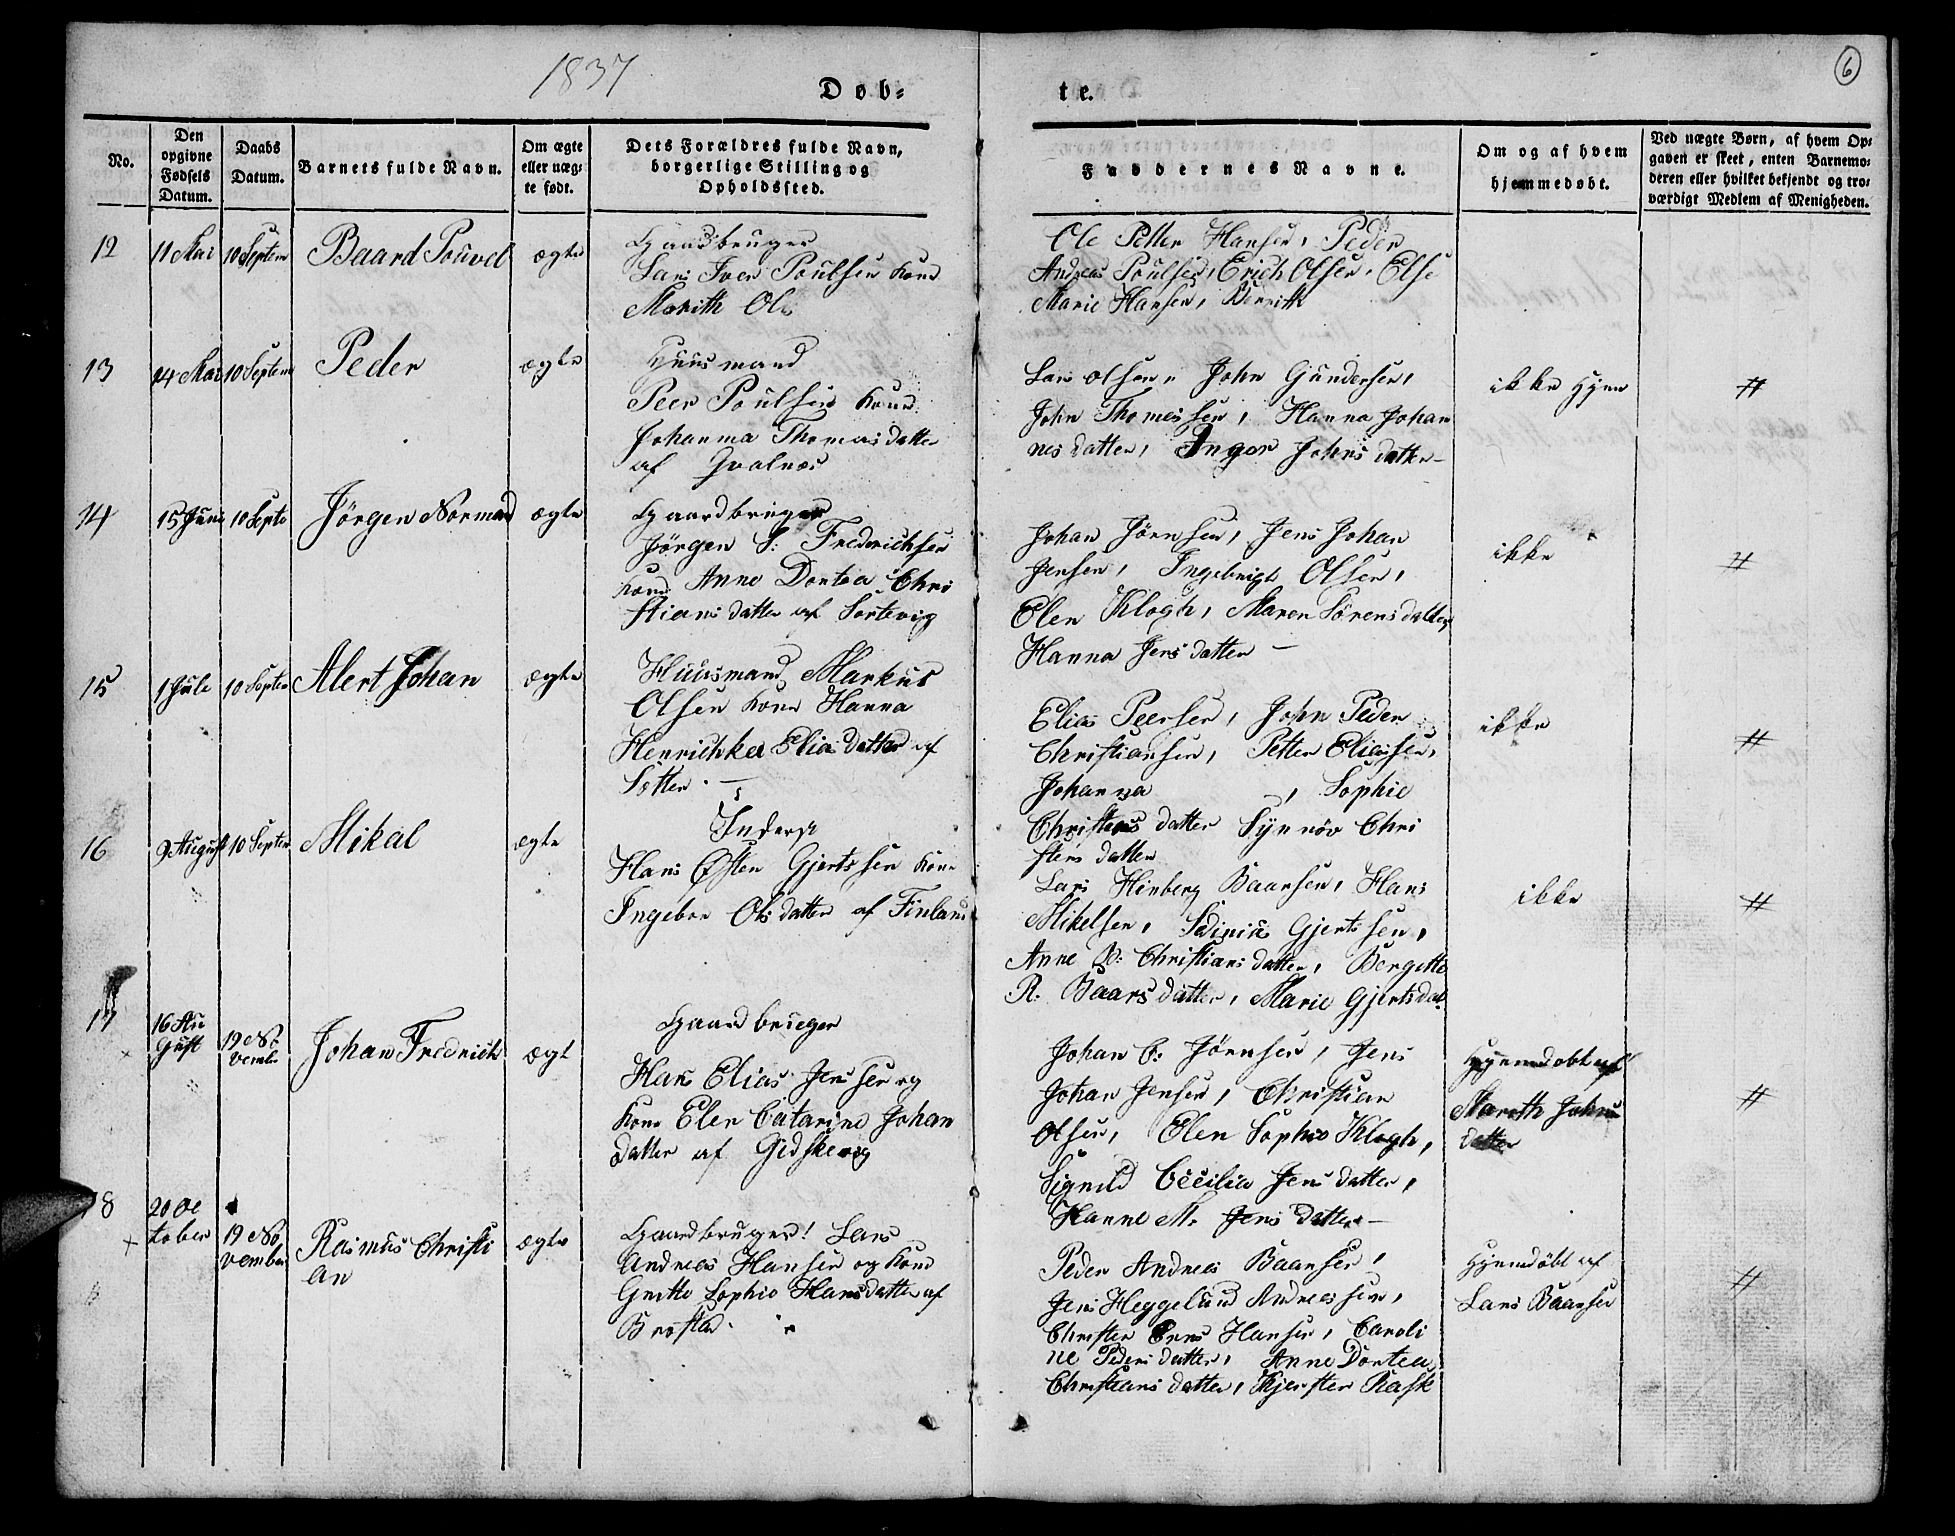 1837
6
Døb-
te.
No.
Den opgivne Fødsels Datum.
Daabs Datum.
Barnets fulde Navn.
Om ægte eller uæg-
te født.
Dets Forældres fulde Navn,
borgerlige Stilling og
Opholdssted.
Faddernes Navne.
Om og af hvem
hjemmedøbt.
Ved uægte Børn, af hvem Op-
gaven er skeet, enten Barnemo-
deren eller hvilket bekjendt og tro-
værdigt Medlem af Menigheden.
12 11 Mai 10 Septem Baard Pouvel ægte
Gaardbruger
Lars Iver Poulsen Kone
Marith Ols
Ole Petter Hansen, Peder
Andreas Poulsen, Erich Olsen, Else
Marie Hansen, Berrith
13 14 Mai 10 Septem Peder ægte
Huusmand
Peer Poulsen Kone
Johanna Thomasdatter
af Hvalnæs
Lars Olsen, John Gundersen,
John Thomessen, Hanna Johan
nesdatter, Inger Johnsdatter -
ikke Hjem
#
14 15 Juni 10 Septe Jörgen Normand ægte
Gaardbruger
Jörgen S: Frederichsen
Kone Anne Dortea Chri
stiansdatter af Sortevig
Johan Jörnsen, Jens Johan
Jensen, Ingebrigt Olsen,
Elen Klogh, Maren Sörensdatter
Hanna Jensdatter -
ikke
#
15 1 Jule 10 Septem Alert Johan ægte
Huusmand Markus
Olsen Kone Hanna
Henrichkea Eliasdatter af
Sötter. -
Elias Peersen, John Peder
Christiansen, Petter Eliassen,
Johanna , Sophie
Christensdatter Synnöv Chri
stensdatter
ikke
#
16 9 August 10 Septem Mikal ægte
Inderst
Hans Østen Gjertssen Kone
Ingebor Olsdatter af Finland
Lars Hinberg Baarsen, Hans
Mikelsen, Gjertssen,
Anne B: Christiansdatter, Bergitte
R. Baarsdatter, Marie Gjertsdat.
ikke
#
17 16 Au
gust
19 No
vembr
Johan Fredrich ægt
Gaardbruger
Hans Elias Jensen og
Kone Elen Catarine Johan
datter af Gidskevig
Johan C: Jörnsen, Jens
Johan Jensen, Christian
Olsen, Elen Sophie Klogh,
Signild Cecilia Jensdatter,
Hanne M. Jensdatter -
Hjemdøbt af
Mareth Johns
datter
#
18 20 Oc
tober
19 No
vember
Rasmus Christi
an
ægte
Gaardbruger! Lars
Andreas Hansen og Kone
Gritte Sophie Hansdatter af
Brøstad.
Peder Andreas Baarsen,
Jens Heggelund Andreassen,
Christen Hansen, Caroli
ne Pedersdatter, Anne Dortea
Christiansdatter, Kjersten Rask
Hjemdöbt af
Lars Baarsen
#